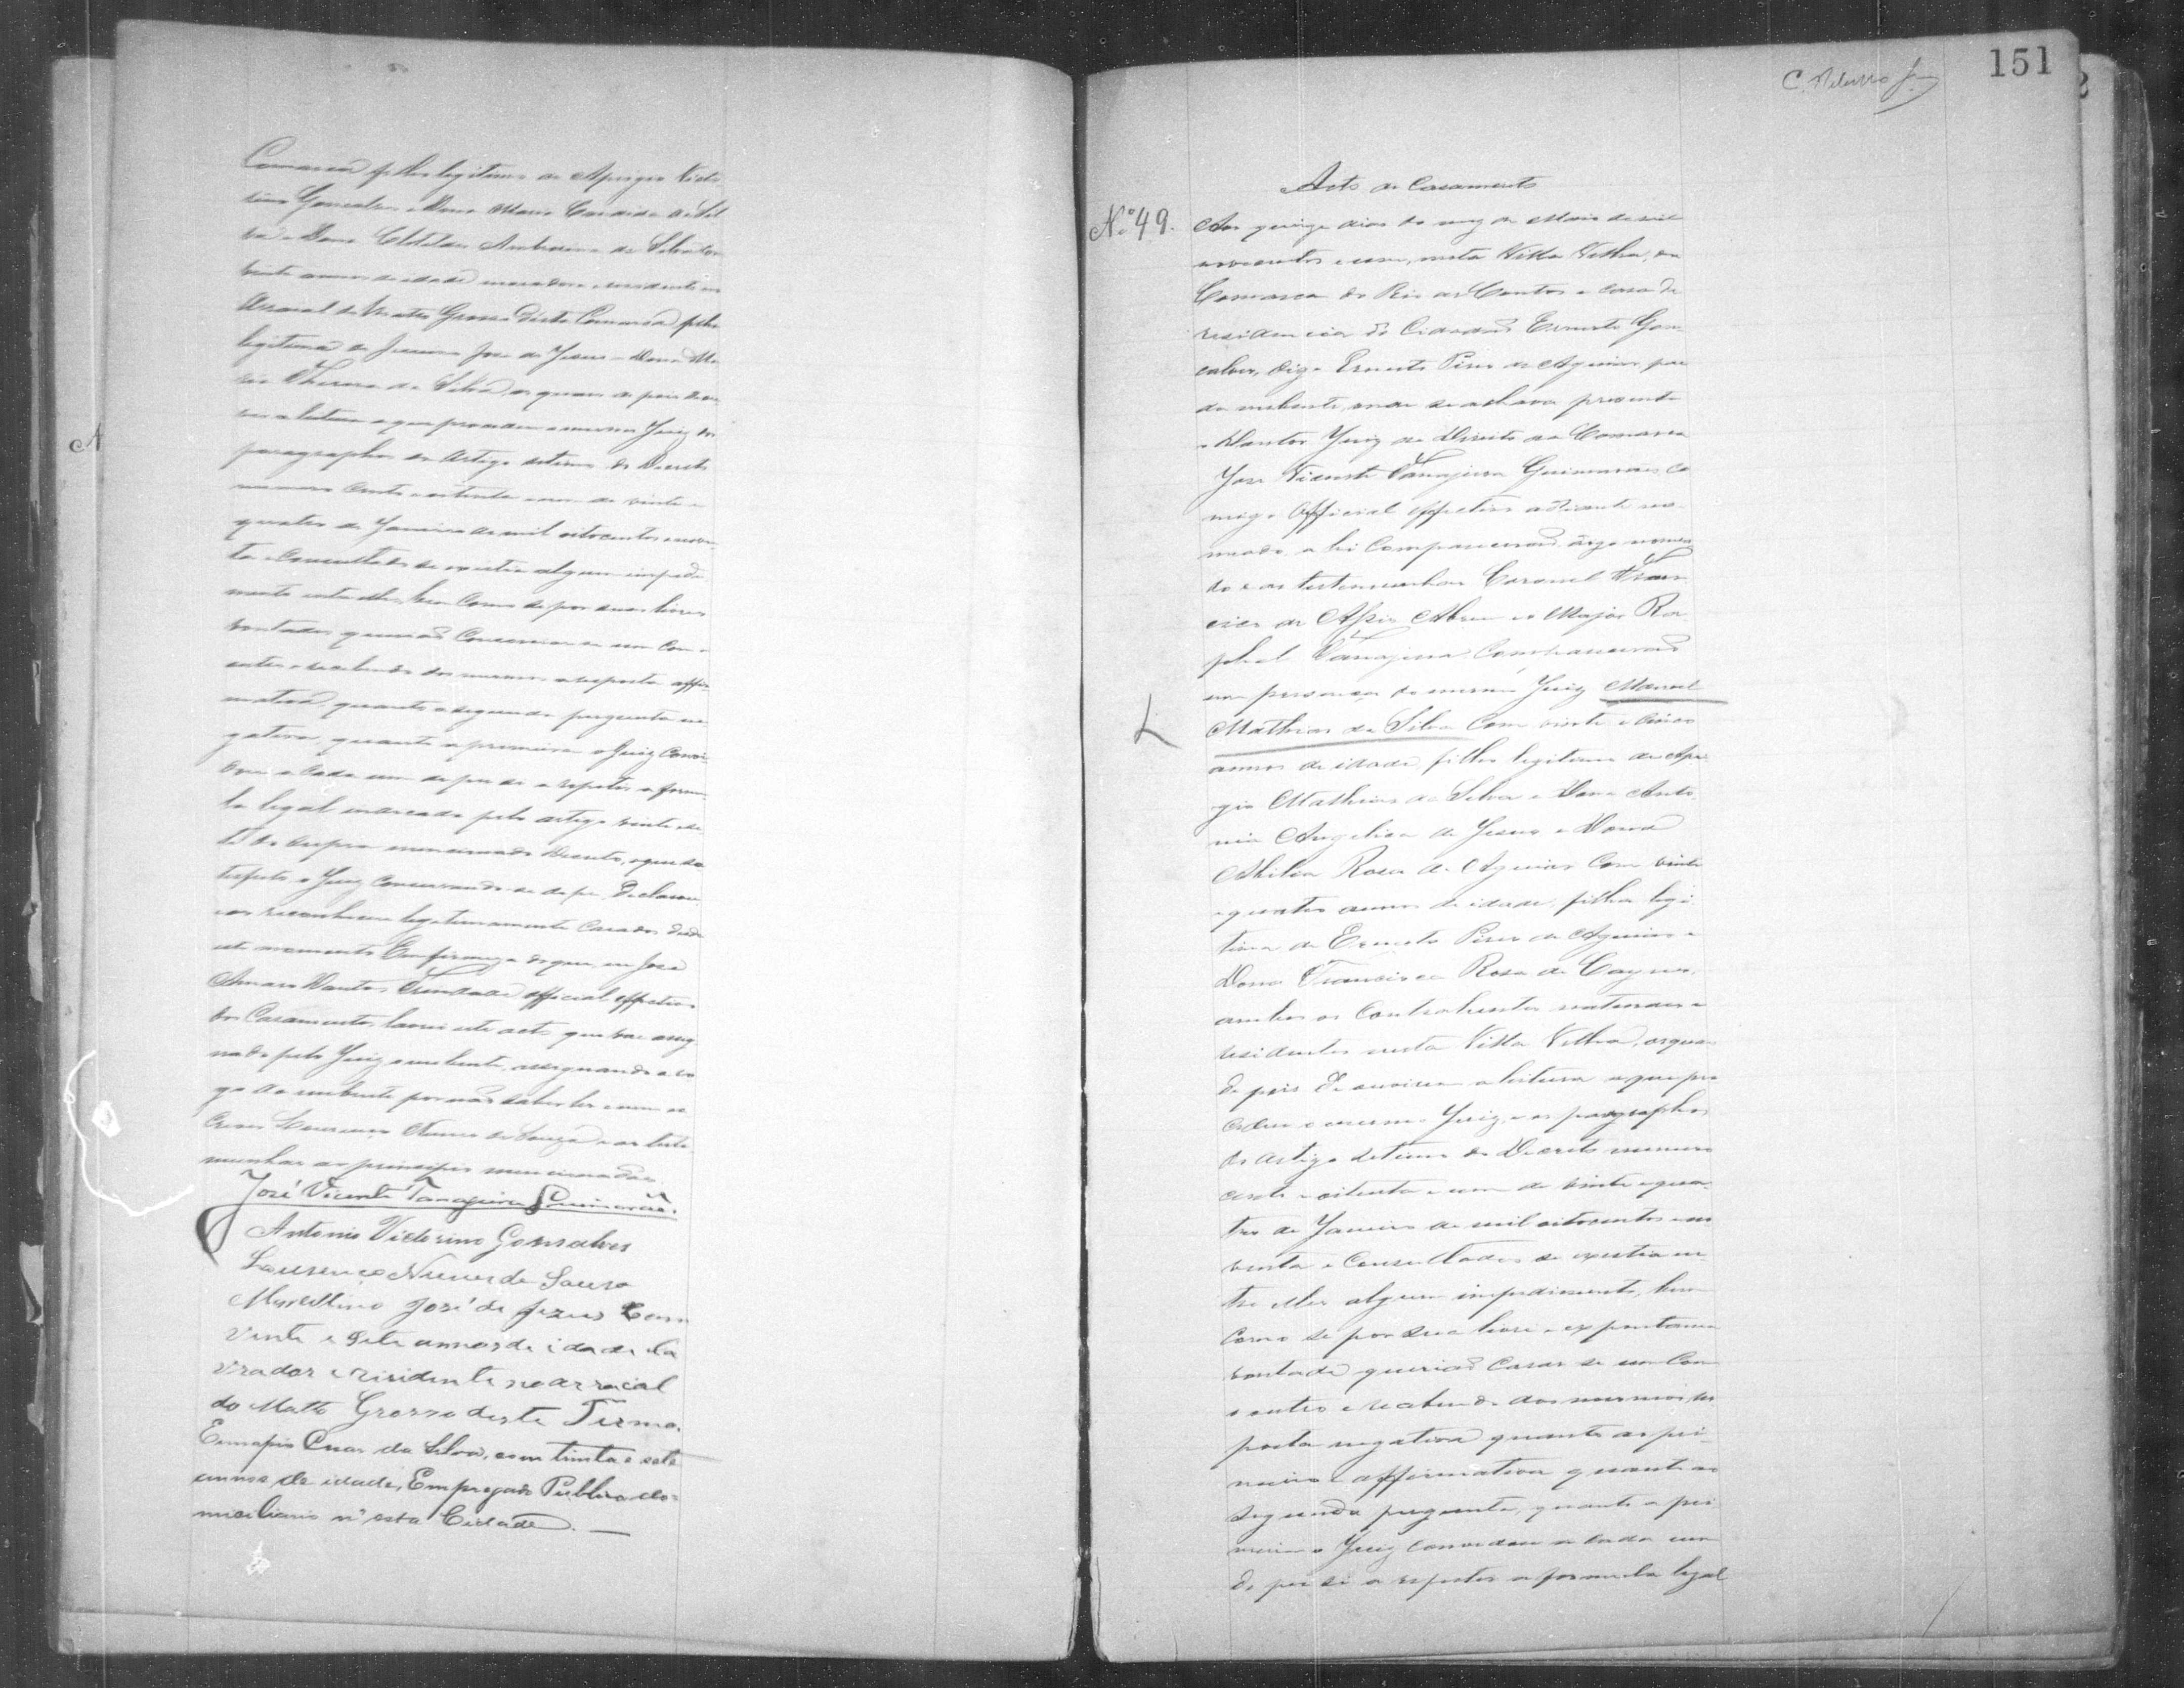 Comarca filho legitimo de Aprigio Victo
rino Gonçalves e Dona Maria Candida da Sil
va e Dona Clotildes Ambrosina da Silva com
vinte annos de idade moradora e residente no
Arraial do Matto Grosso desta Comarca filha
legitima de José de Jesus e Dona Ma
ria Thereza da Silva, os quaes depois de ou
vir a leitura a que procedeu o mesmo Juiz dos
paragraphos do artigo setimo do Decreto
numero cento e oitenta e um de vinte e
quatro de Janeiro de mil oitocentos e noven
ta e consultados se existia algum impedi
mento entre elles, bem como se por suas livres
vontades queriaõ casar-se um com o
outro e recebendo dos mesmos a resposta affir
mativa quanto a segunda pergunta ne
gativa, quanto a primeira o Juiz convi
dou a cada um de per si a repetir a formu
la legal indicada pelo artigo vinte e se
te do supra mencionado Decreto, o que sa
tisfeito o Juiz conservando-se de pé declarou
e os reconheceu legitimamente casados desde
este momento. Em firmeza do que, eu José
Amaro Dantas Trindade official effectivo
dos Casamentos lavrei este acto que vae assig
nado pelo Juiz e nubente, assignando a ro
go da nubente por não saber ler e nem es
crever Lourenço Nunes de Souza e as teste
munhas ao principio mencionadas.
José Vicente Tanajura Guimarães.
Antonio Victorino Gonsalves
Lourenço Nunes de Souza
Marcellino José de Jezus Com
vinte e sete annos de idade la
vrador e risidente no arraial
do Matto Grosso deste Termo.
Cesar da Silva, com trinta e sete
annos de idade, Empregado Publico do-
miciliario n'esta Cidade. —
151
C. Jr
Acto de Casamento
Nº 49. Aos quinze dias do mez de Maio de mil
novecentos e um, nesta Villa Velha, da
Comarca do Rio de Contas e casa de
residencia do Cidadaõ Ernesto Gon
calves, digo Ernesto Pires de Aguiar pae
da nubente, onde se achava presente
o Doutor Juiz de Direito da Comarca
José Vicente Tanajura Guimaraes co
migo Official effectivo adiante no
meado, ahi compareceraõ digo nomea
do e as testemunhas Coronel Fran
cisco de Assis Abreu e o Major Ra
phael Tanajura Compareceraõ
em presença do mesmo Juiz Manoel
Mathias da Silva Com vinte e cinco
annos de idade, filho legitimo de Apri
gio Mathias da Silva e Dona Anto
nia Angelica de Jesus e Dona
Rosa de Aguiar Com vinte
e quatro annos de idade, filha legi
tima de Ernesto Pires de Aguiar e
Dona Francisca Rosa de
ambos os contrahentes naturaes e
residentes nesta Villa Velha, os quaes
depois de ouvirem a leitura a que pro
cedeu o mesmo Juiz, os paragraphos
do artigo setimo do Decreto numero
cento e oitenta e um de vinte e qua
tro de Janeiro de mil oitocentos e no
venta e consultados se existia en
tre elles algum impedimento, bem
como se por sua livre e expontanea
vontade queriaõ casar-se um com
o outro e recebendo dos mesmos res
posta negativa quanto ao pri
meiro e affirmativa quanto ao
segundo pergunta, quanto a pri
meira o Juiz convidou a cada um
de per si a repetir a formula legal